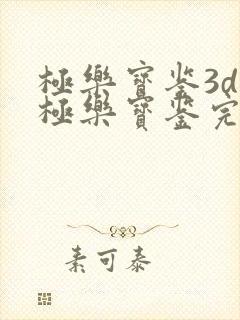 極樂寶鉴3d
極樂寶鉴完
素可泰